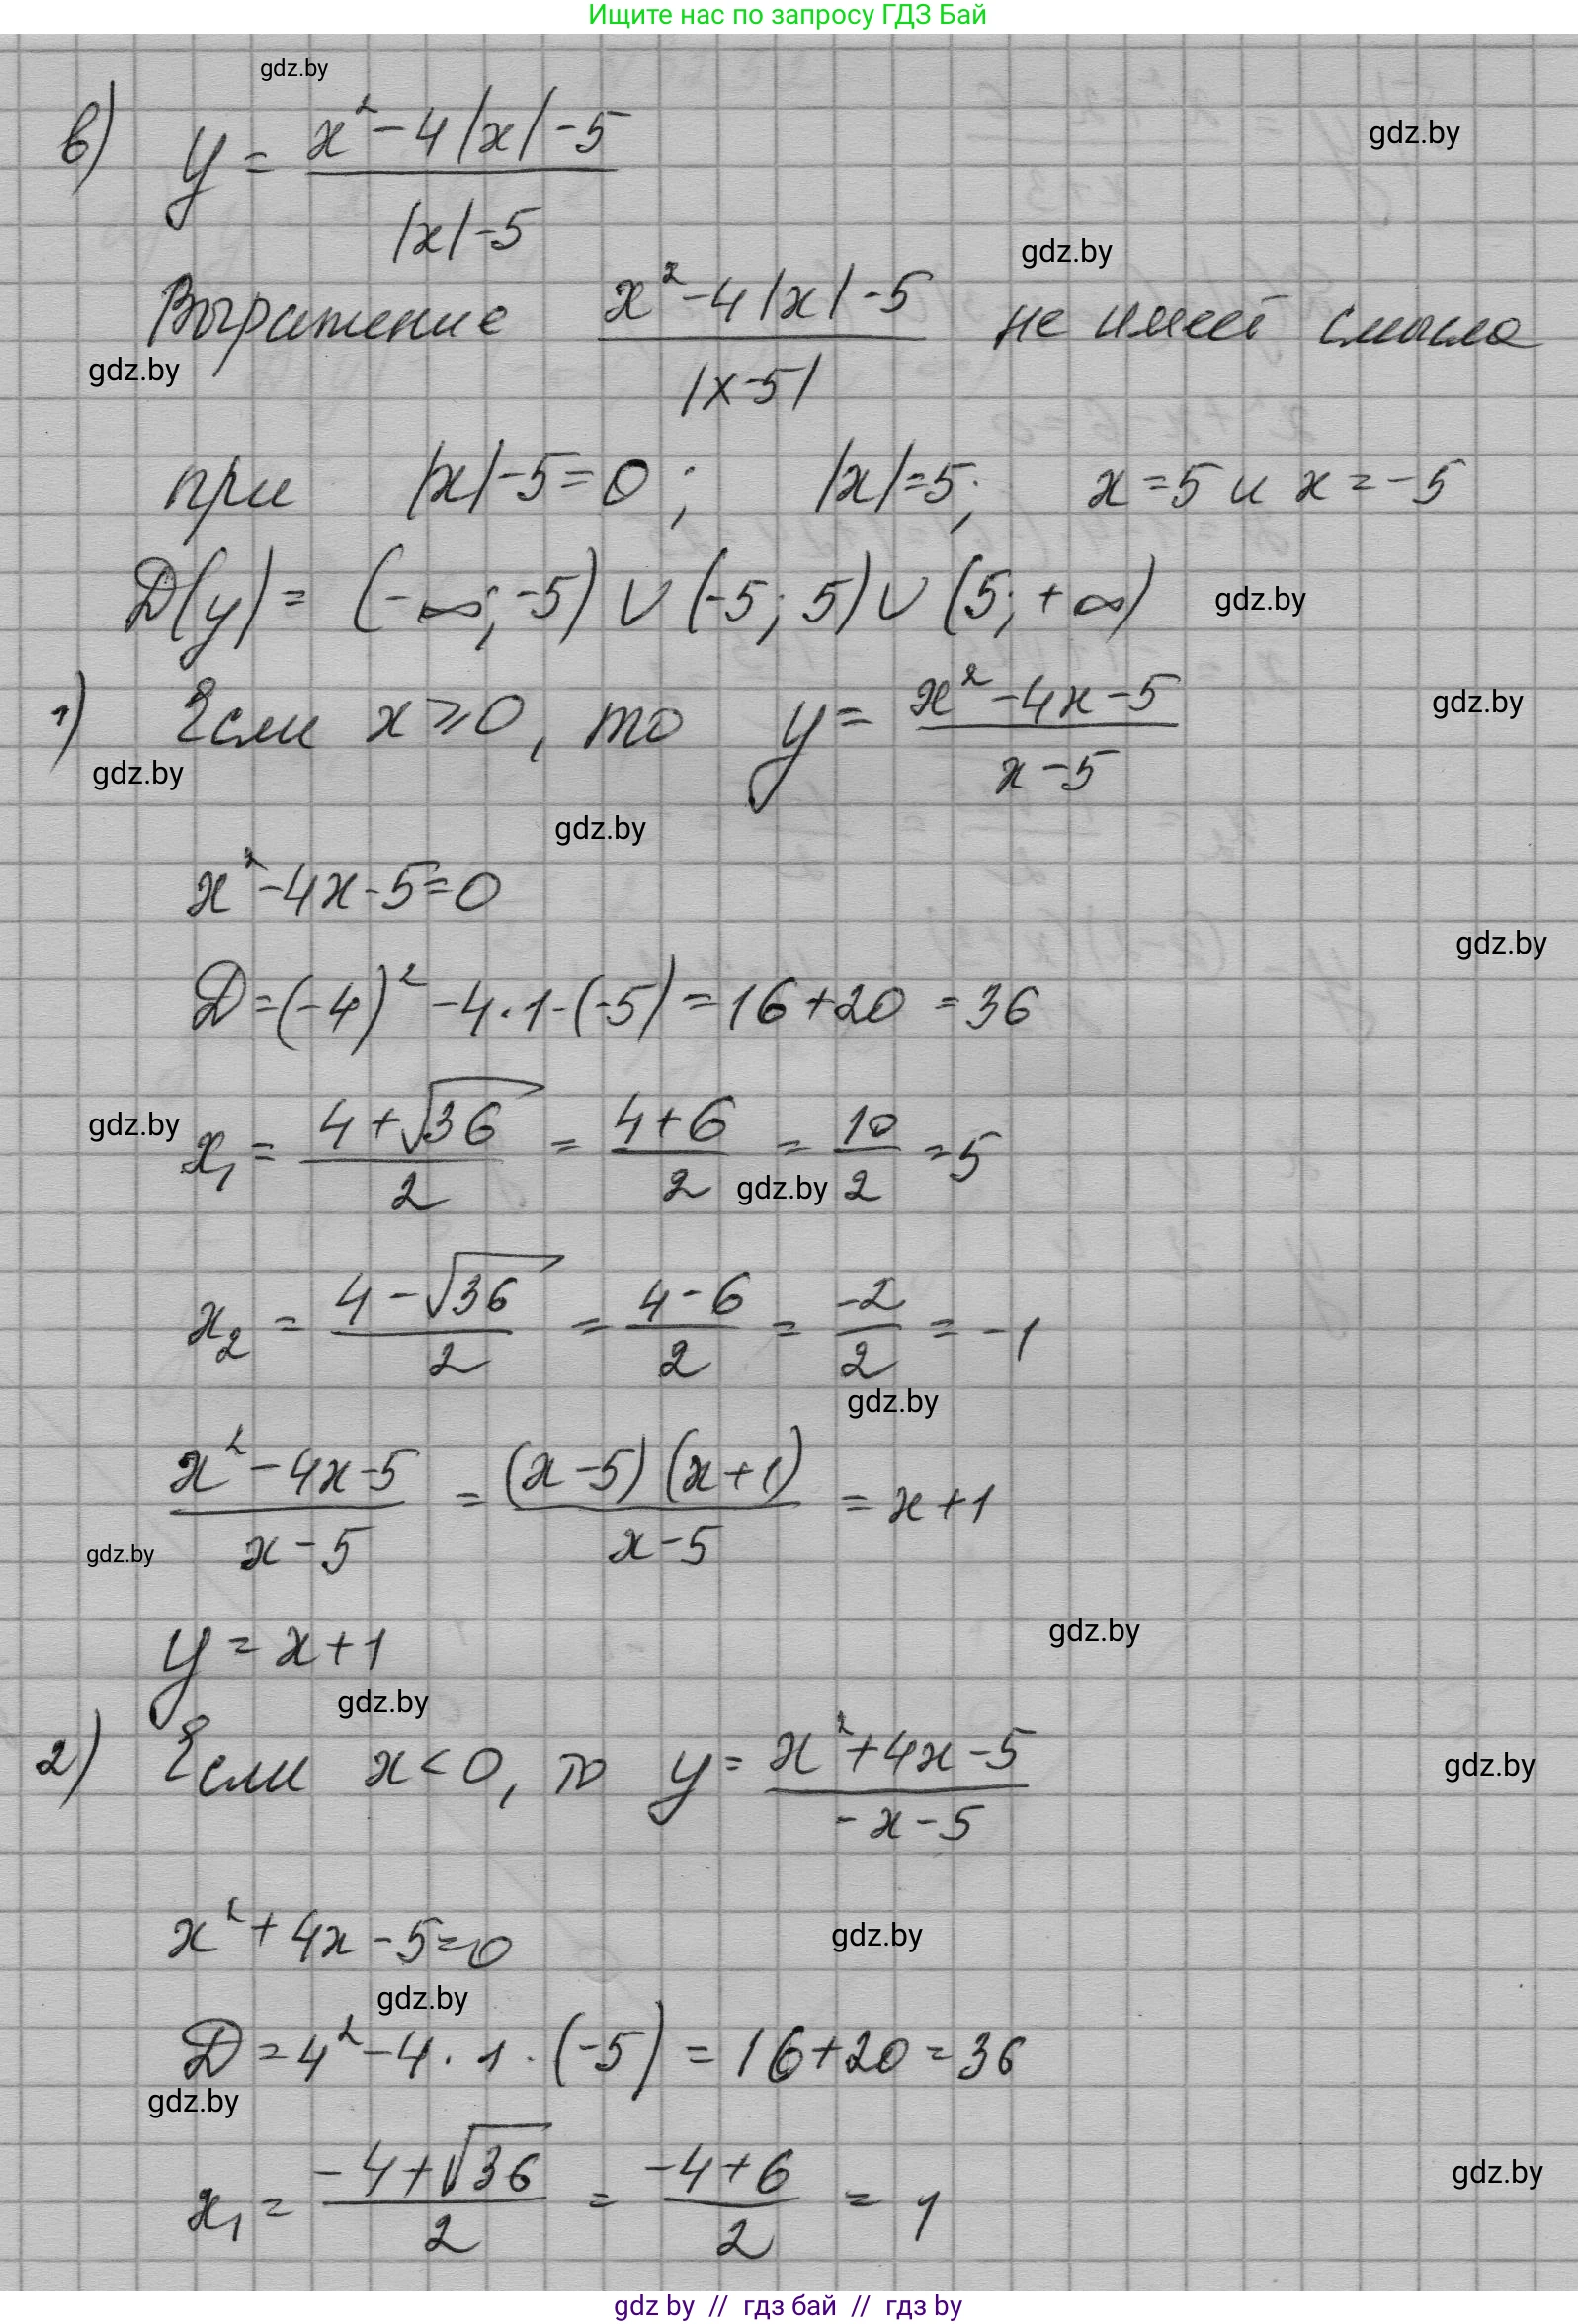 Ищите нас по запросу ГДЗ Бай
gdz.by
в) y = (x² - 4|x| - 5) / (|x| - 5)
gdz.by
gdz.by
Выражение (x² - 4|x| - 5) / |x-5| не имеет смысла
gdz.by
при |x| - 5 = 0; |x| = 5; x = 5 и x = -5
D(y) = (-∞; -5) ∪ (-5; 5) ∪ (5; +∞) gdz.by
1) Если x ⩾ 0, то y = (x² - 4x - 5) / (x - 5) gdz.by
gdz.by
gdz.by
x² - 4x - 5 = 0
gdz.by
D = (-4)² - 4 · 1 · (-5) = 16 + 20 = 36
gdz.by x₁ = (4 + √36) / 2 = (4 + 6) / 2 = 10 / 2 = 5
gdz.by
x₂ = (4 - √36) / 2 = (4 - 6) / 2 = -2 / 2 = -1
gdz.by
(x² - 4x - 5) / (x - 5) = (x - 5)(x + 1) / (x - 5) = x + 1
gdz.by
y = x + 1 gdz.by
gdz.by
2) Если x < 0, то y = (x² + 4x - 5) / (-x - 5) gdz.by
x² + 4x - 5 = 0 gdz.by
gdz.by
D = 4² - 4 · 1 · (-5) = 16 + 20 = 36
gdz.by
x₁ = (-4 + √36) / 2 = (-4 + 6) / 2 = 1 gdz.by
gdz by // гдз бай // гдз by